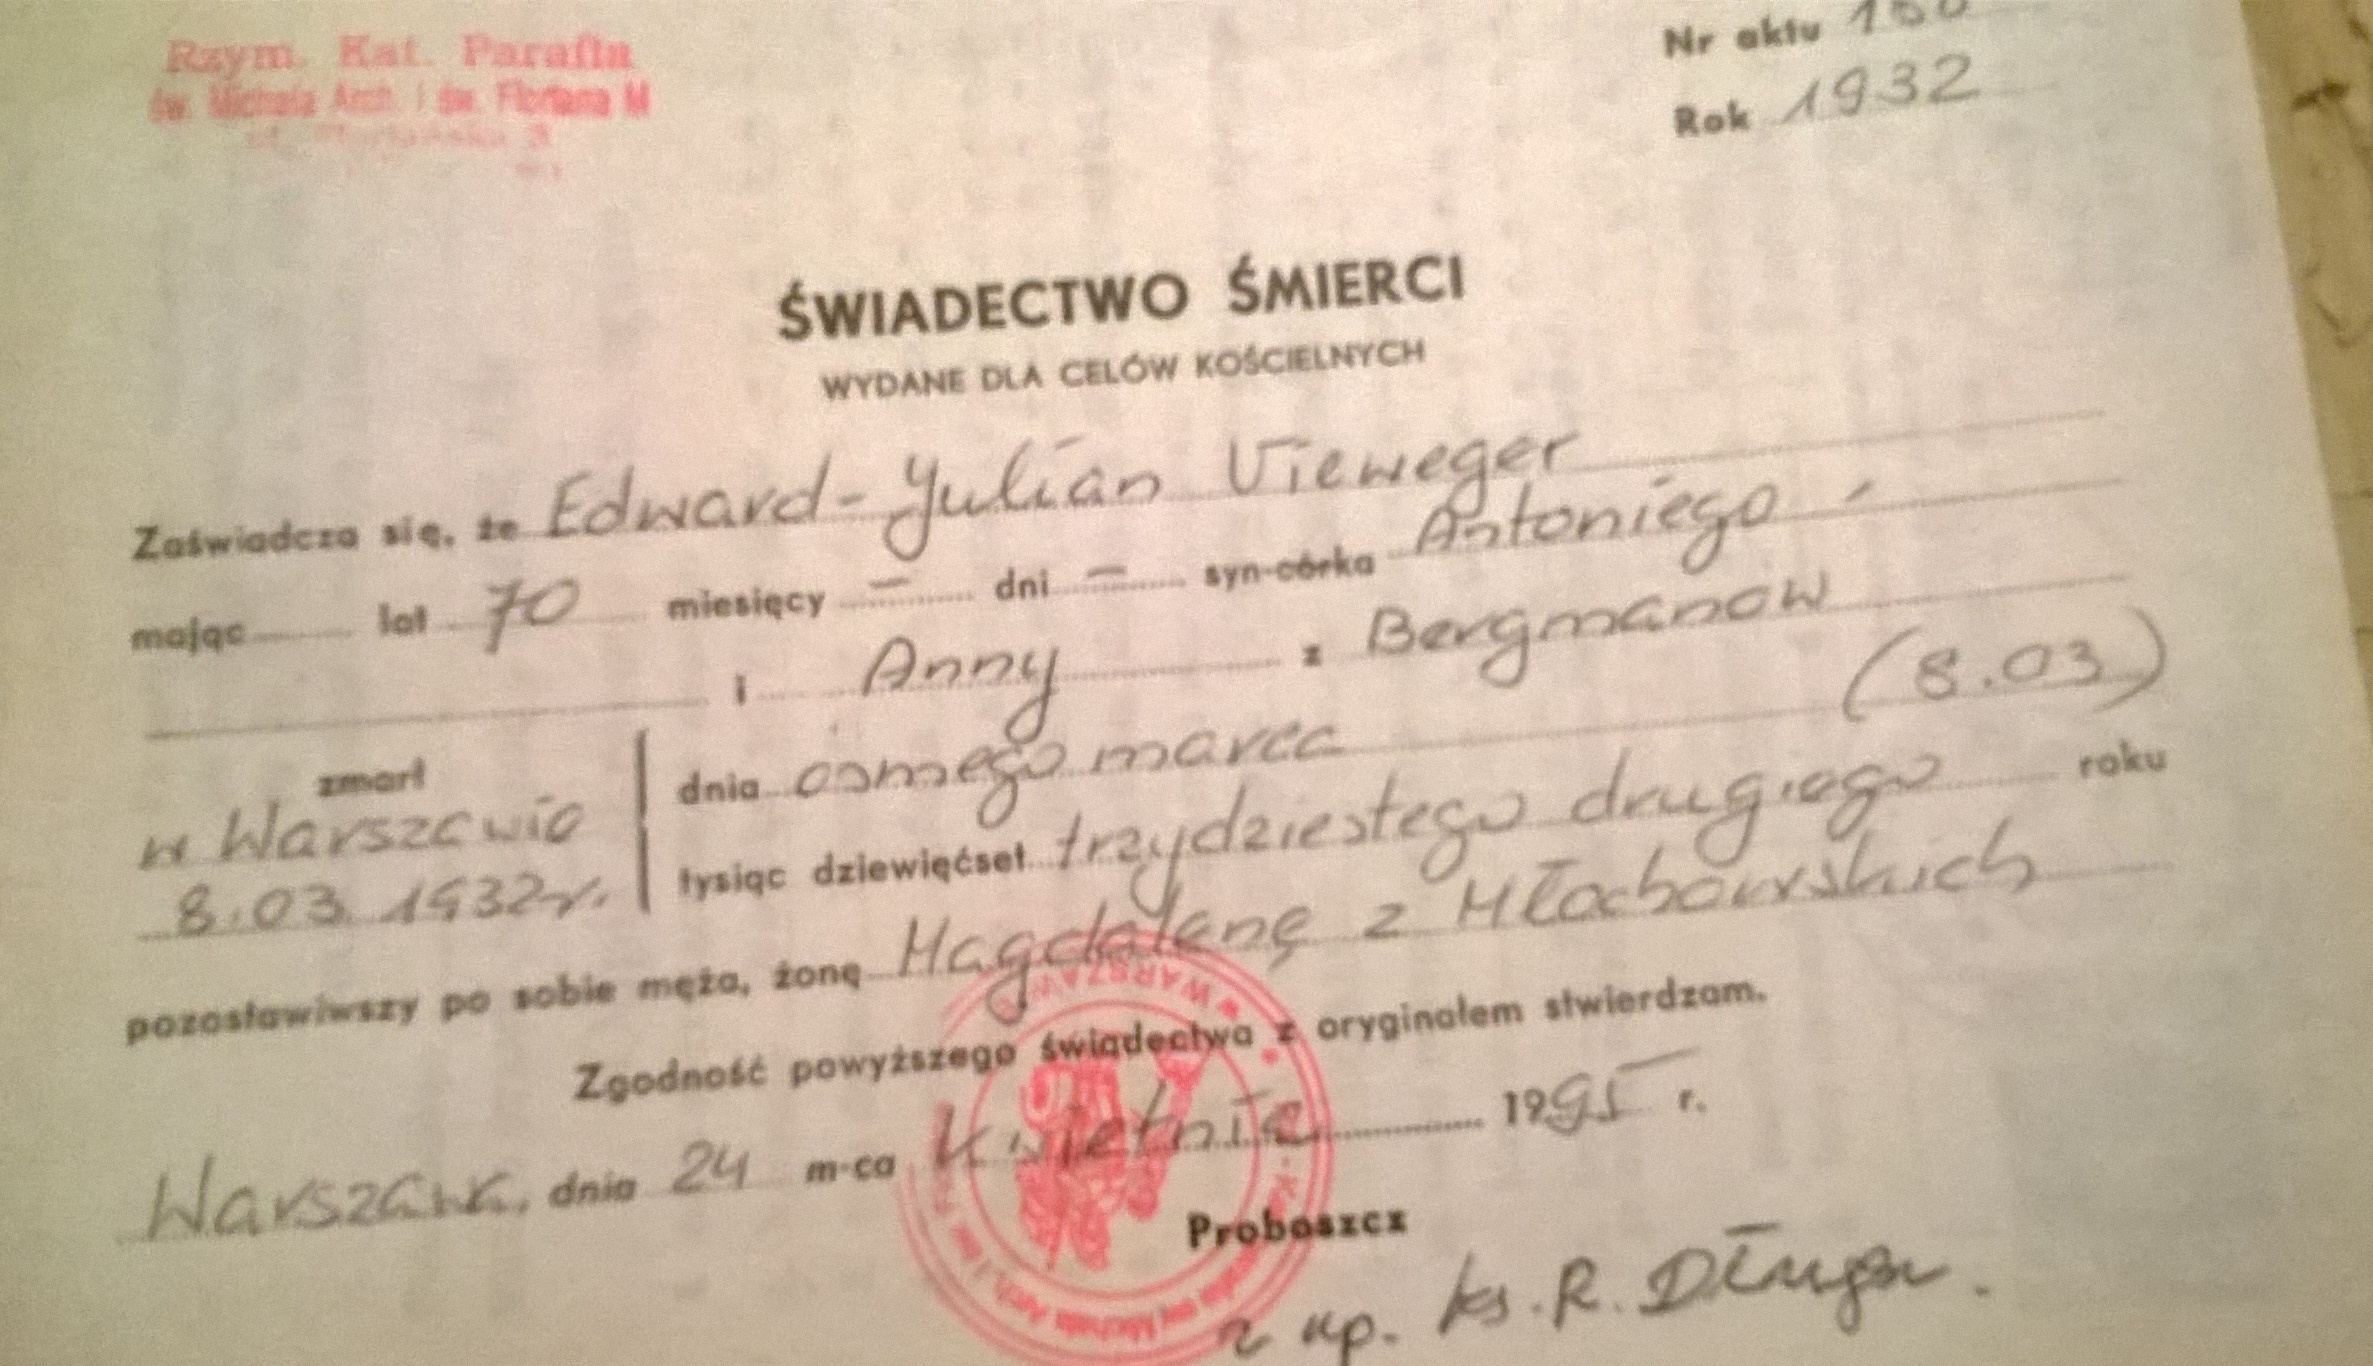 Rzym. Kat. Parafia
św. Michała Arch. i św. Floriana M
3
Nr aktu
Rok 1932
ŚWIADECTWO ŚMIERCI
WYDANE DLA CELÓW KOŚCIELNYCH
Zaświadcza się, że Edward-Julian Vieweger
mając lat 70 miesięcy – dni – syn-córka Antoniego
i Anny z Bergmanow
zmarł
w Warszawie
8.03.1932r.
dnia osmego marca (8.03)
tysiąc dziewięćset trzydziestego drugiego roku
pozostawiwszy po sobie męża, żonę Magdalenę z Młochowskich
Zgodność powyższego świadectwa z oryginałem stwierdzam.
Warszawa, dnia 24 m-ca Kwietnia 1995 r.
Proboszcz
z up. ks. R.
w WARSZAWIE